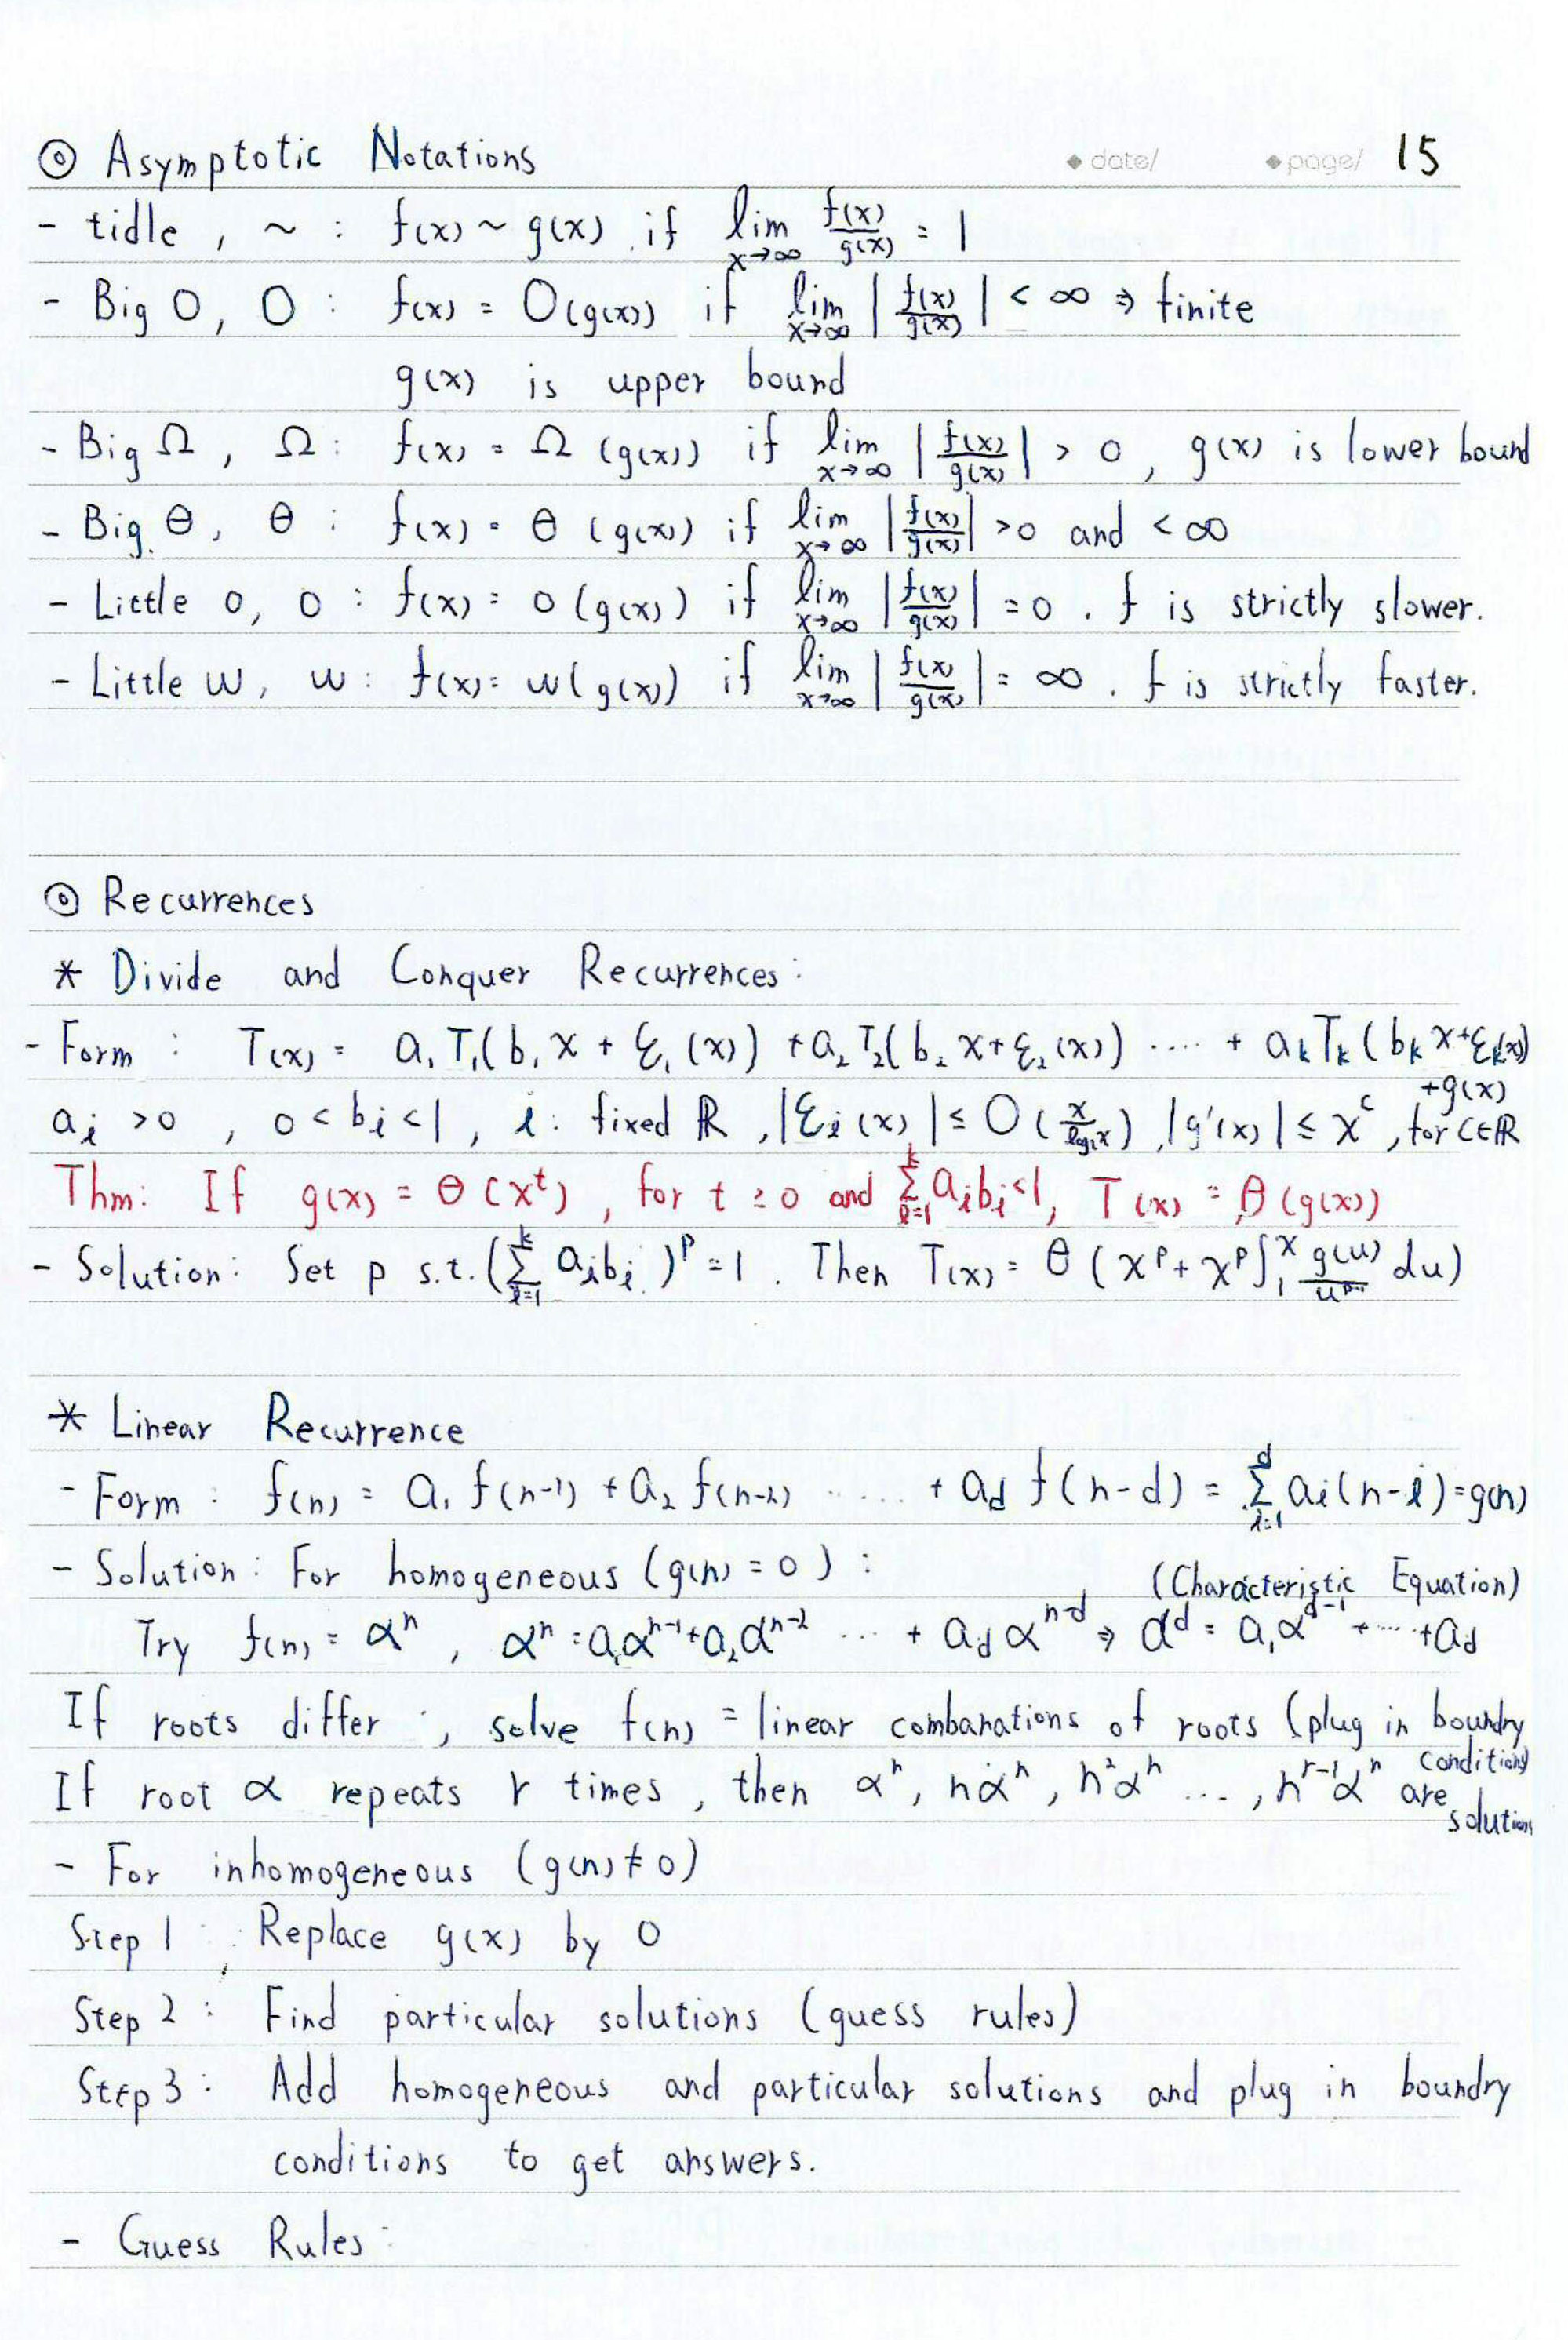 ◎ Asymptotic Notations ◆ date/ ◆ page/ 15
- tidle , ~ : f(x) ~ g(x) if lim x→∞ f(x)/g(x) = 1
- Big O, O : f(x) = O(g(x)) if lim x→∞ | f(x)/g(x) | < ∞ ⇒ finite
g(x) is upper bound
- Big Ω , Ω : f(x) = Ω (g(x)) if lim x→∞ | f(x)/g(x) | > 0 , g(x) is lower bound
- Big θ, θ : f(x) = θ (g(x)) if lim x→∞ | f(x)/g(x) | >0 and <∞
- Little o, o : f(x) = o (g(x)) if lim x→∞ | f(x)/g(x) | = 0 . f is strictly slower.
- Little w, w : f(x) = w(g(x)) if lim x→∞ | f(x)/g(x) | = ∞ . f is strictly faster.
◎ Recurrences
* Divide and Conquer Recurrences :
- Form : T(x) = a₁T₁(b₁x + ε₁(x)) + a₂T₂(b₂x + ε₂(x)) .... + aₖTₖ(bₖx + εₖ(x))
+g(x)
aᵢ >0 , 0 < bᵢ < 1 , i : fixed ℝ , |εᵢ(x)| ≤ O(x/log²x) , |g'(x)| ≤ x^c , for c∈ℝ
Thm: If g(x) = θ(x^t) , for t ≥ 0 and Σ_{i=1}^{k} aᵢbᵢ<1, T(x) = θ(g(x))
- Solution : Set p s.t. (Σ_{i=1}^{k} aᵢbᵢ )^p = 1 . Then T(x) = θ ( x^p + x^p ∫₁^x g(u)/u^{p+1} du)
* Linear Recurrence
- Form : f(n) = a₁ f(n-1) + a₂ f(n-2) ..... + a_d f(n-d) = Σ_{i=1}^{d} aᵢ(n-i) = g(n)
- Solution : For homogeneous (g(n) = 0 ) :
(Characteristic Equation)
Try f(n) = α^n , α^n = a₁α^{n-1} + a₂α^{n-2} ... + a_d α^{n-d} ⇒ α^d = a₁α^{d-1} + ... + a_d
If roots differ , solve f(n) = linear combanations of roots (plug in boundry
conditions)
If root α repeats r times , then α^n, nα^n, n²α^n ... , n^{r-1}α^n are
solutions
- For inhomogeneous (g(n) ≠ 0)
Step 1 : Replace g(x) by 0
Step 2 : Find particular solutions (guess rules)
Step 3 : Add homogeneous and particular solutions and plug in boundry
conditions to get answers.
- Guess Rules :